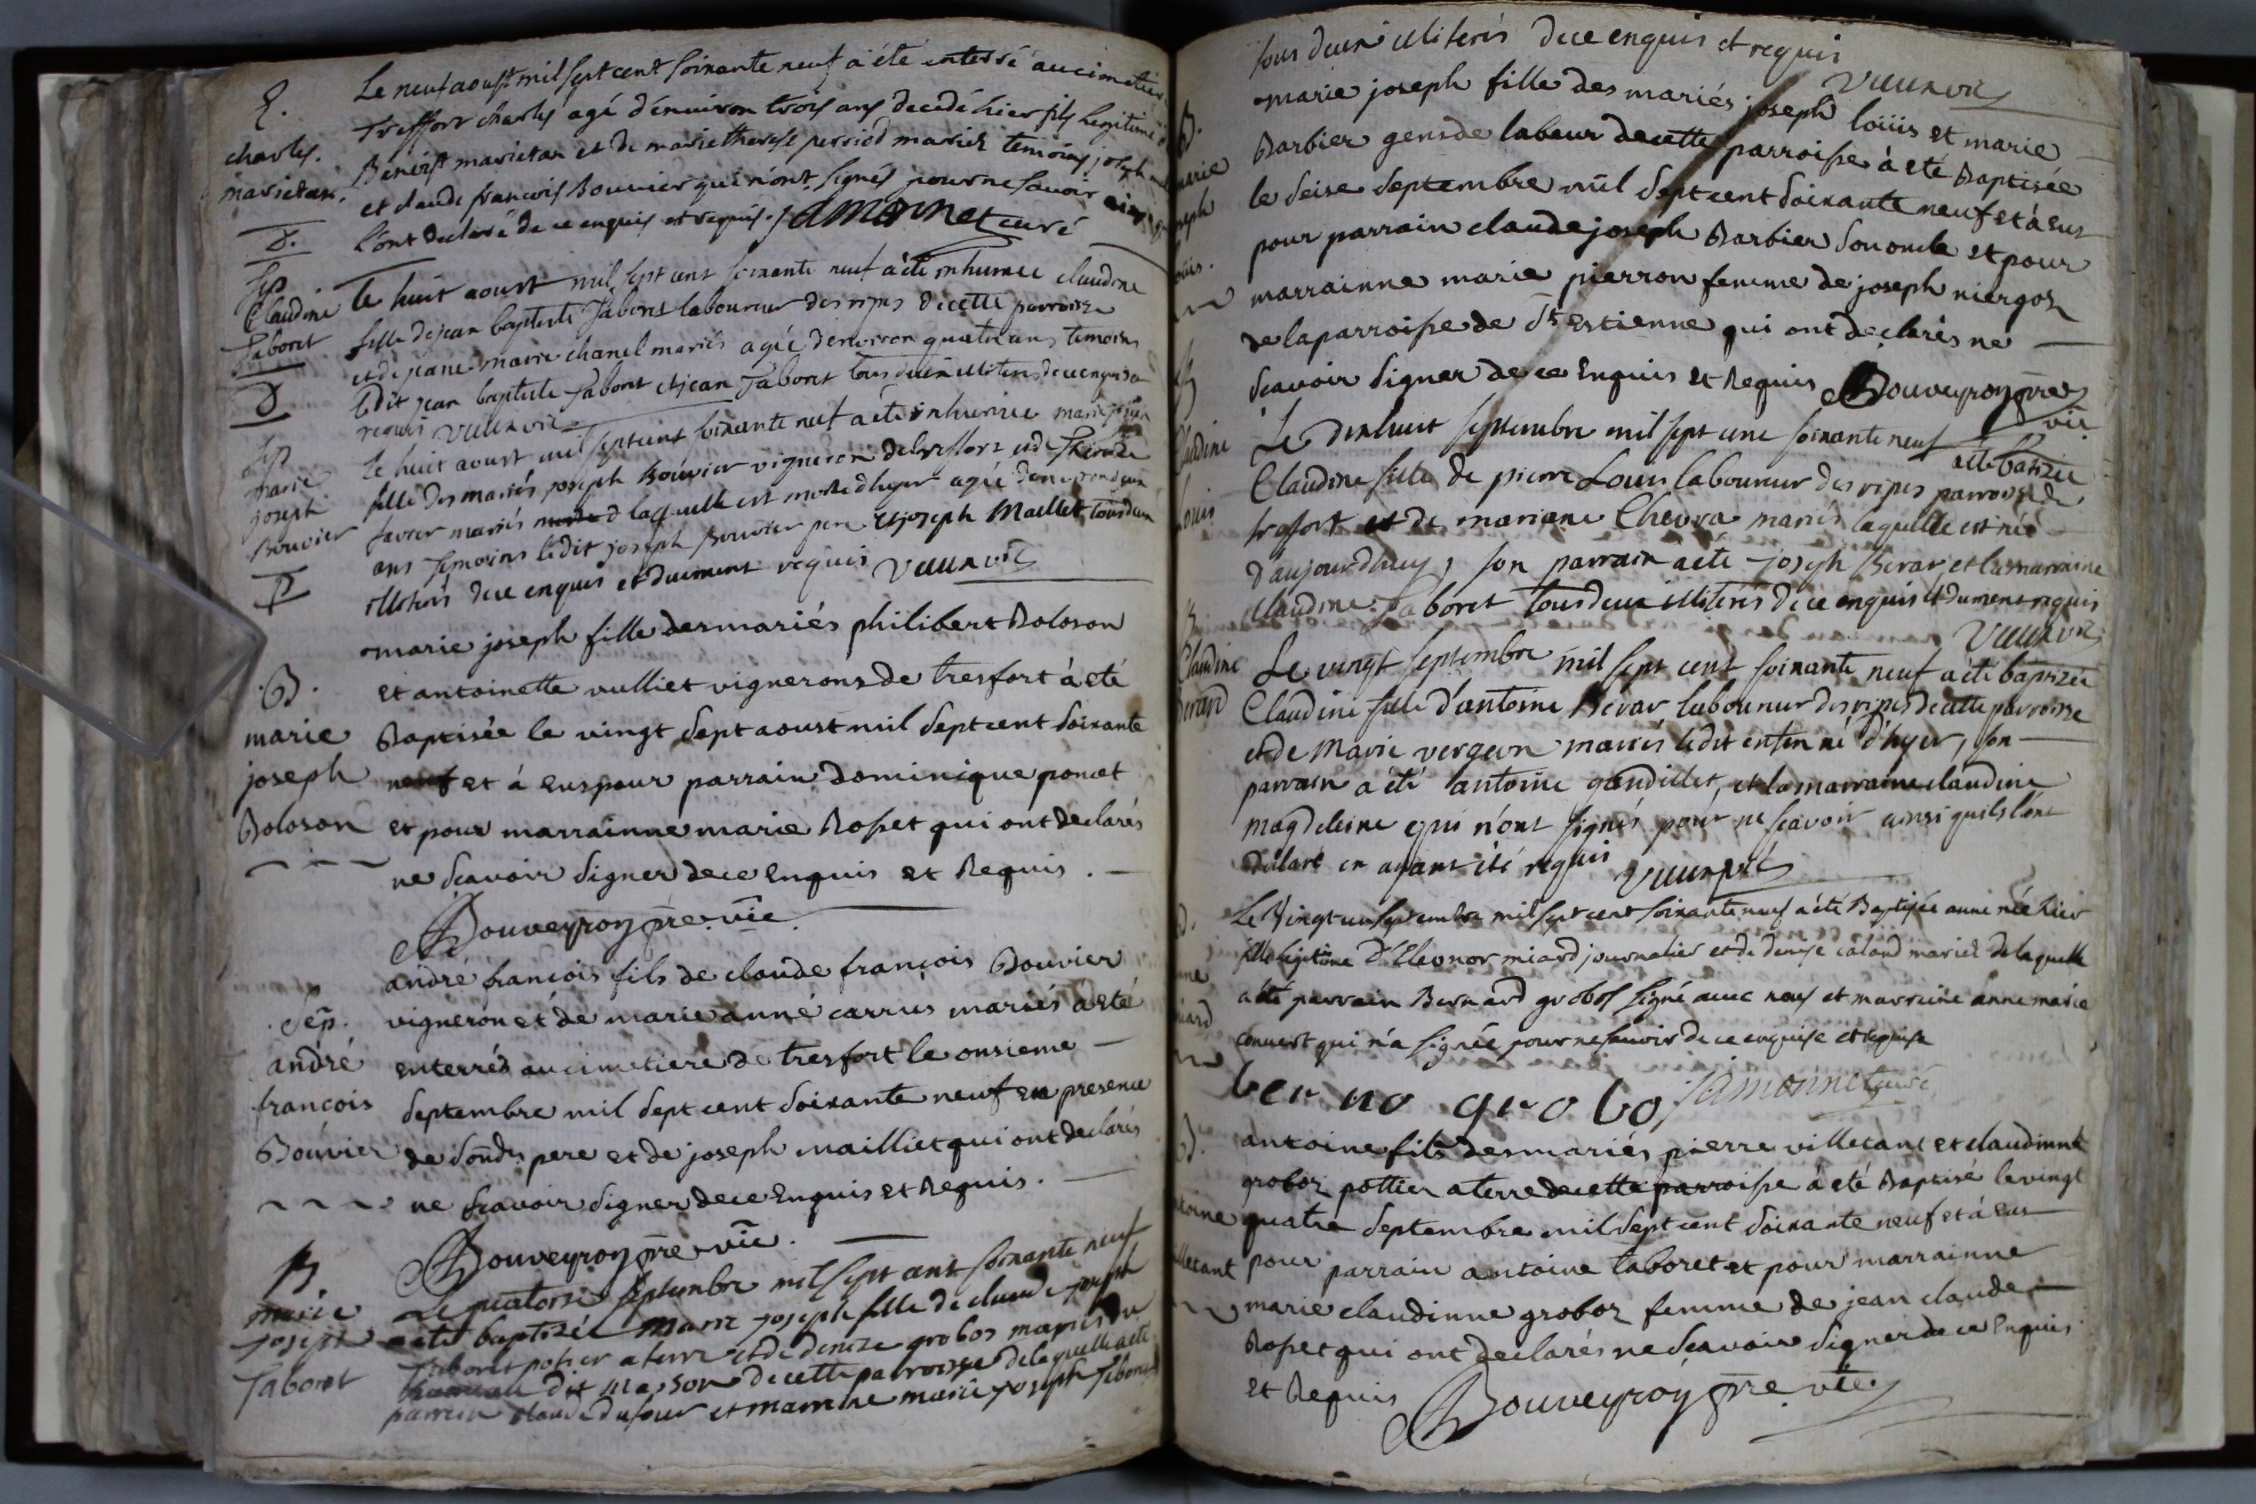 Le neuf aoust mil sept cent soixante neuf a été enterré au cimetiere
E.
Treffort charles agé d'environ trois ans decedé hier fils legitime
charles.
Benoist marietan et de marie therese perriod mariés temoins joseph
marietan.
et claude francois Bouvier qui n'ont signés pour ne savoir ainsi
l'ont declaré de ce enquis et requis. jamonnet curé
d.
Sep
Le huit aoust mil sept cent soixante neuf a été inhumée claudine
Claudine
fille de jean baptiste Taboret laboureur des ripes de cette parroisse
Taboret
et de jeane marie chanel mariés agée d'environ quatre ans temoins
d
ledit jean baptiste Taboret et jean Taboret tous deux illiterés de ce enquis et
requis Vuurvic
Sep
Le huit aoust mil sept cent soixante neuf a été inhumée marie joseph
marie
fille des mariés joseph Bouvier vigneron de tresfort et de
joseph
favier mariés laquelle est morte d'hyer agée d'environ deux
Bouvier
ans temoins ledit joseph Bouvier pere et joseph Maillet tous deux
illiterés de ce enquis et duement requis Vuurvic
marie joseph fille des mariés philibert Boloson
.B.
et antoinette vulliet vignerons de tresfort à eté
marie
Baptisée le vingt sept aoust mil sept cent soixante
joseph
neuf et à eus pour parrain dominique poncet
Boloson
et pour marrainne marie Rosset qui ont declarés
ne scavoir signer de ce Enquis et Requis.
Bouveyron pre. vic.
andré francois fils de claude francois Bouvier
. Sep.
vigneron et de marie anne carrus mariés à eté
andré
enterrés au cimetiere de tresfort le onsieme
francois
septembre mil sept cent soixante neuf en presence
Bouvier
de sondt pere et de joseph mailliet qui ont declarés
ne scavoir signer de ce Enquis et Requis.
Bouveyron pre. vic.
B
Le quatorse septembre mil sept cent soixante neuf
marie
a eté baptizée Marie joseph fille de claude joseph
joseph
Taboret potier a terre et de denize grobos mariés
Taboret
dit masson de cette parroisse de laquelle a eté
parrein claude dufour et marraine marie joseph Taboret
tous deux illiterés de ce enquis et requis
Vuurvic
B.
marie joseph fille des mariés joseph loüis et marie
marie
Barbier gens de labeur de cette parroisse à eté Baptisée
joseph
le seise septembre mil sept cent soixante neuf et à eus
loüis.
pour parrain claude joseph Barbier son oncle et pour
marrainne marie pierron femme de joseph niergoz
de la parroisse de St Estienne qui ont declarés ne
scavoir signer de ce Enquis et Requis Bouveyron pre
vic
B
Le dixhuit septembre mil sept cent soixante neuf a eté batizée
Claudine
Claudine fille de pierre Louis laboureur des ripes parroisse de
Louis
treffort et de mariane Chevra mariés laquelle est née
d'aujourd'huy, son parrain a eté joseph Berar, et la marraine
claudine Taboret tous deux illiterés de ce enquis et dument requis
Vuurvic
B.
Claudine
Le vingt septembre mil sept cent soixante neuf a été baptizée
Berard
Claudine fille d'antoine Berar laboureur des ripes de cette parroisse
et de Marie vergeon mariés ledit enfen né d'hyer, son
parrain a été antoine gandillet, et la marraine claudine
magdeleine qui n'ont signés pour ne scavoir ainsi quils l'ont
declaré en ayant été requis Vuurvic
B.
Le Vingt un septembre mil sept cent soixante neuf a été Baptisée anne née hier
fille legitime d'Eleonor miard journalier et de denise caland mariés de laquelle
anne
a été parrain Bernard grobos signé avec nous et marreine anne marie
miard
convert qui n'a signée pour ne savoir de ce enquise et requise
ber na gro bo jamonnet curé
B.
antoine fils des mariés pierre villetant et claudinne
groboz pottier a terre de cette parroisse à eté Baptisé le vingt
antoine
quatre septembre mil sept cent soixante neuf et à eus
villetant
pour parrain antoine taboret et pour marrainne
marie claudinne groboz femme de jean claude
Rosset qui ont declarés ne scavoir signer de ce Enquis
et Requis Bouveyron pre. vic.